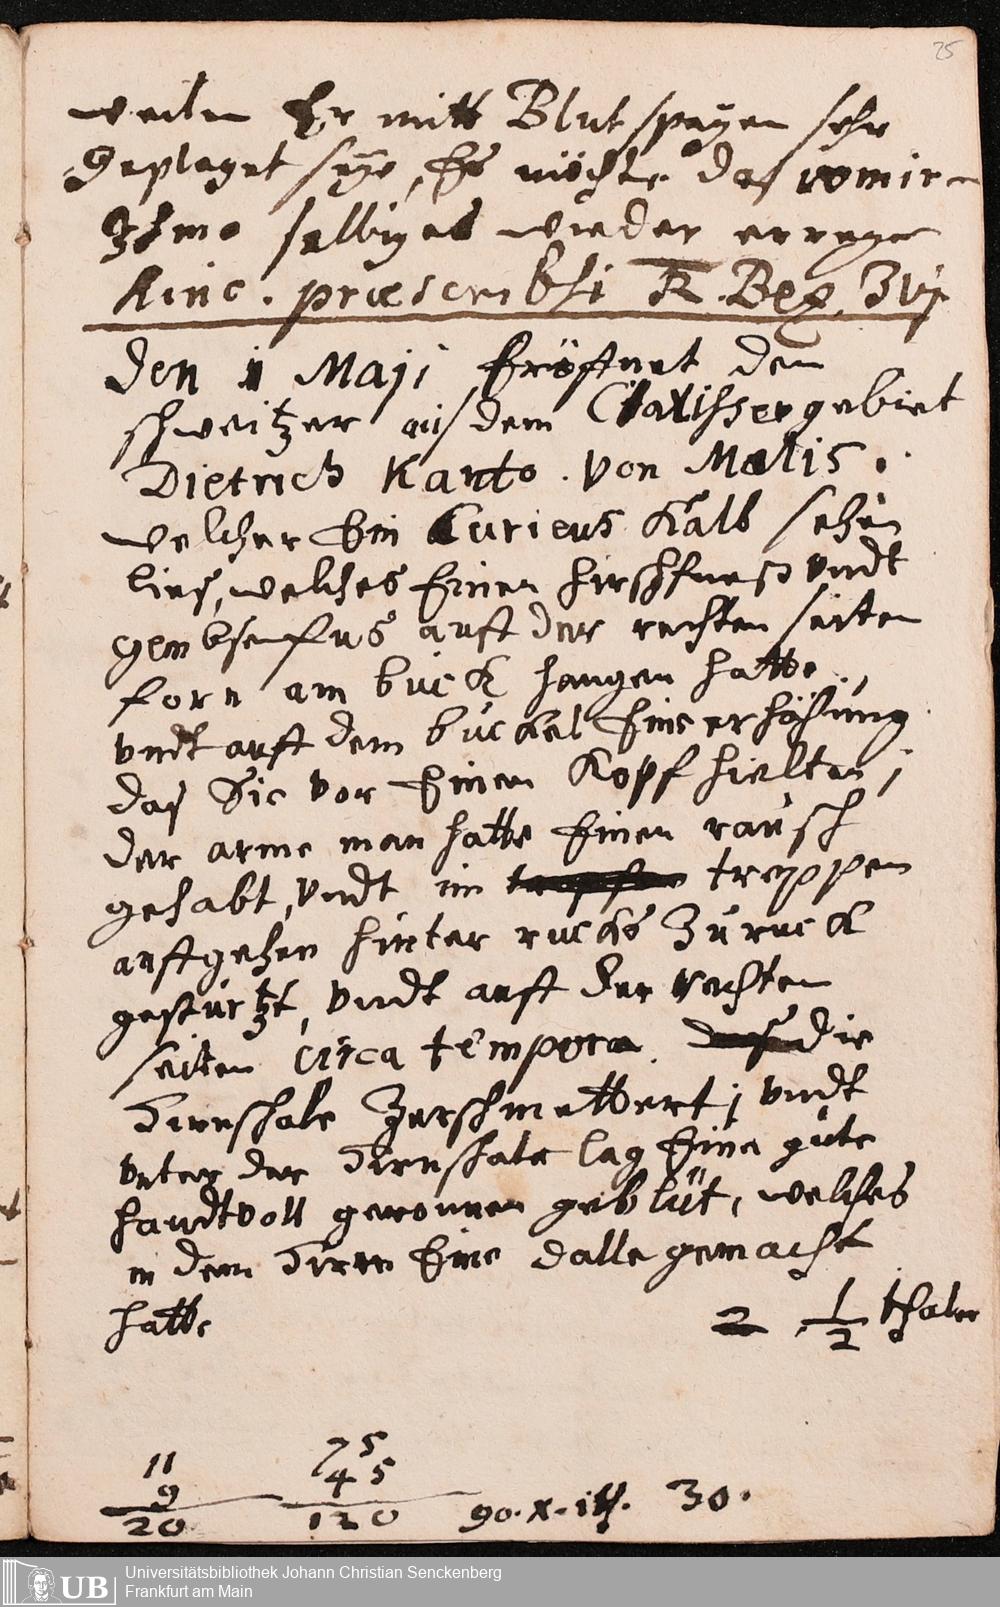 25
weilen Er mitt Blut speyen sehr
geplaget seye, Es möchte das vomiren
Ihme selbiges wieder erregen
hinc. præscribsi
den 11 Maji Eröffnet den
schweitzer aus dem gebiet
Dietrich Kanto. von Malis.
welcher Ein Curieus Kalb sehen
lies, welches Einen hirschfuess undt
gembsenfus auff der rechten seiten
forn am buck hangen hatte.,
undt auff dem buckel Eine erhöhung
das Sie vor Einen Kopf hielten;
der arme man hatte Einen rausch
gehabt, undt im treppen
auffgehen hinter rucks Zuruck
gestürtzt, undt auff der rechten
seiten circa tempora. die
Hirnshale Zerschmettert; undt
unter der Hirnshale lag Eine gute
handtvoll geronnen geblüt, welches
in dem Hirn Eine dalle gemacht
hatte 1/2 thaler
11 75
9 45
20 120 90. x. 30.
Universitätsbibliothek Johann Christian Senckenberg
UB Frankfurt am Main